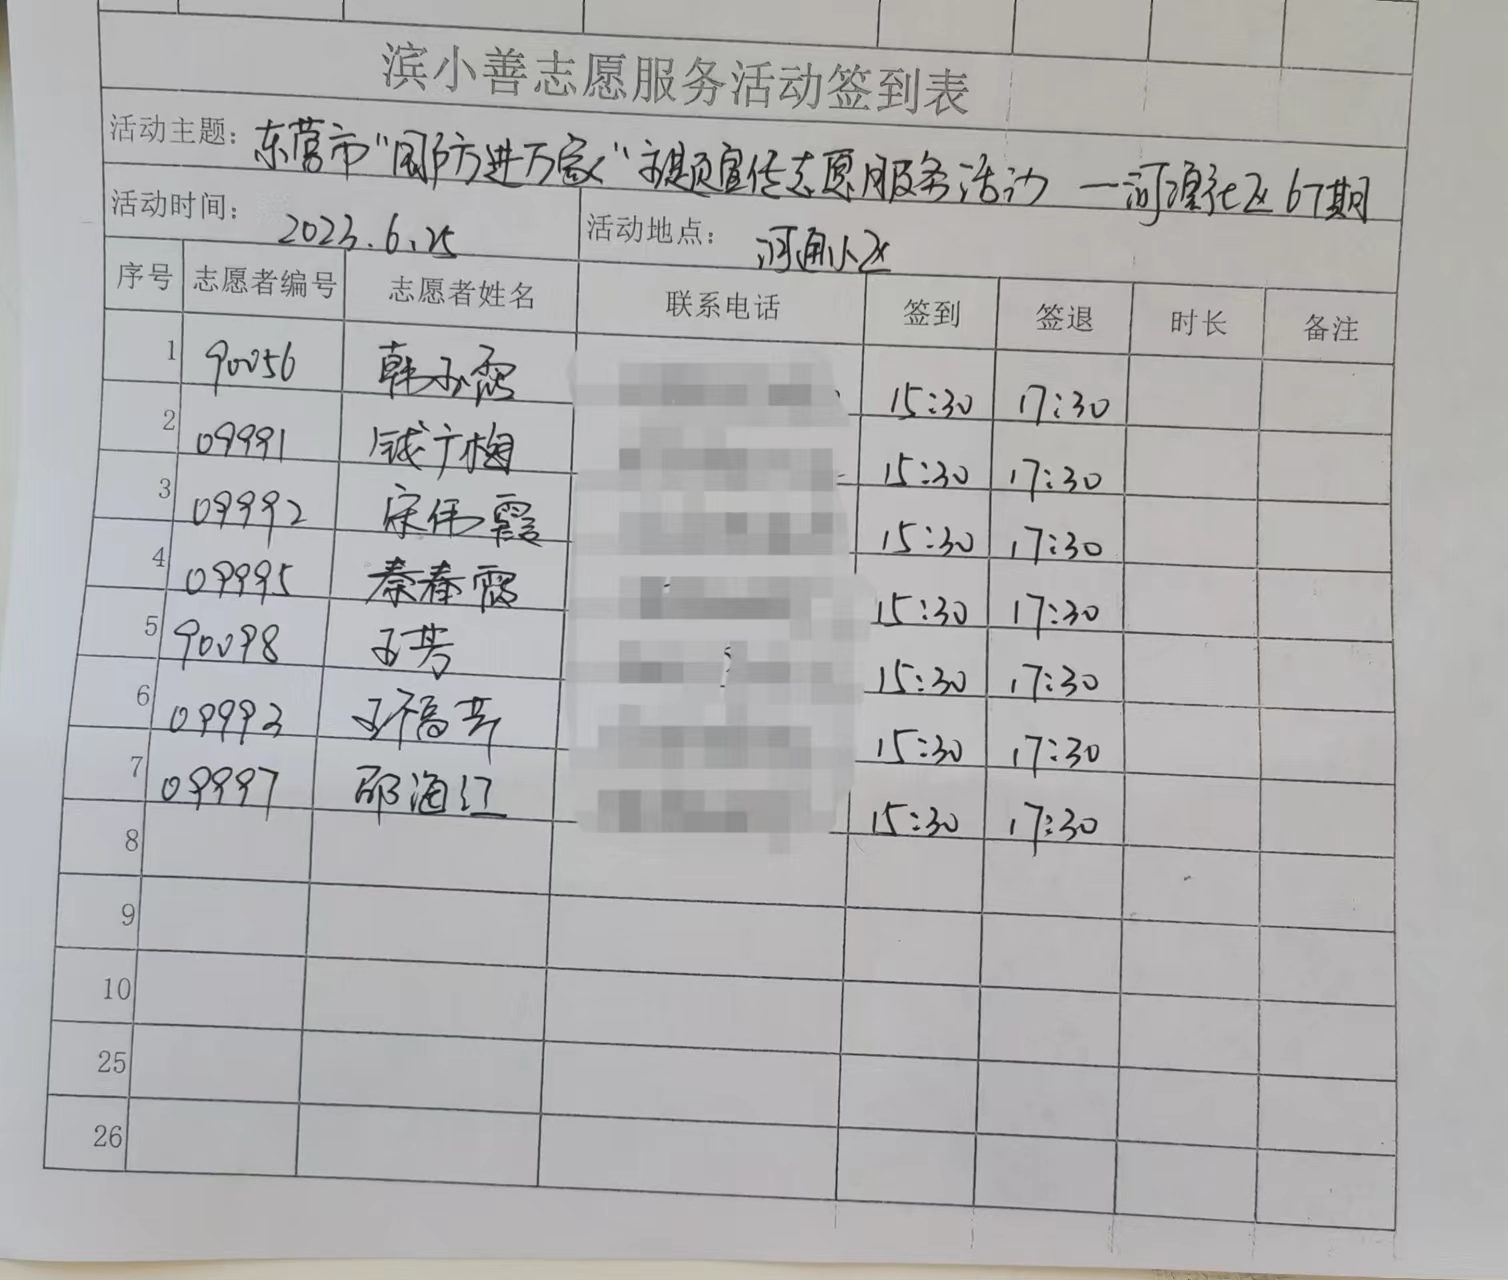 滨小善志愿服务活动签到表
活动主题：东营市“国防进万家”主题宣传志愿服务活动 一河滨社区67期
活动时间：2023.6.25 活动地点：河通小区
序号 志愿者编号 志愿者姓名 联系电话 签到 签退 时长 备注
1 90056 韩玉霞 15:30 17:30
2 09991 钱广梅 15:30 17:30
3 09992 宋伟霞 15:30 17:30
4 09995 秦春霞 15:30 17:30
5 90098 王芳 15:30 17:30
6 09993 王福芹 15:30 17:30
7 09997 邵海江 15:30 17:30
8
9
10
25
26